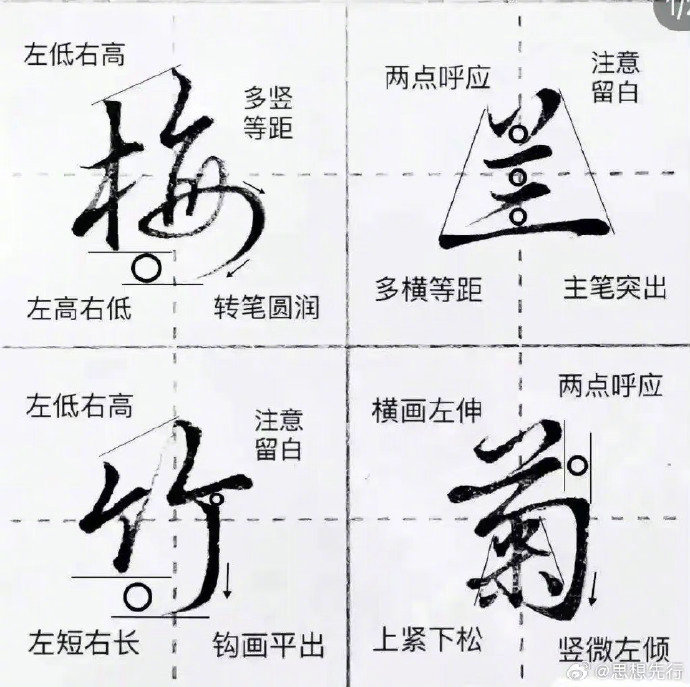 左低右高
多竖
等距
梅
左高右低
转笔圆润
两点呼应
注意
留白
兰
多横等距
主笔突出
左低右高
注意
留白
竹
左短右长
钩画平出
横画左伸
两点呼应
菊
上紧下松
竖微左倾
@思想先行